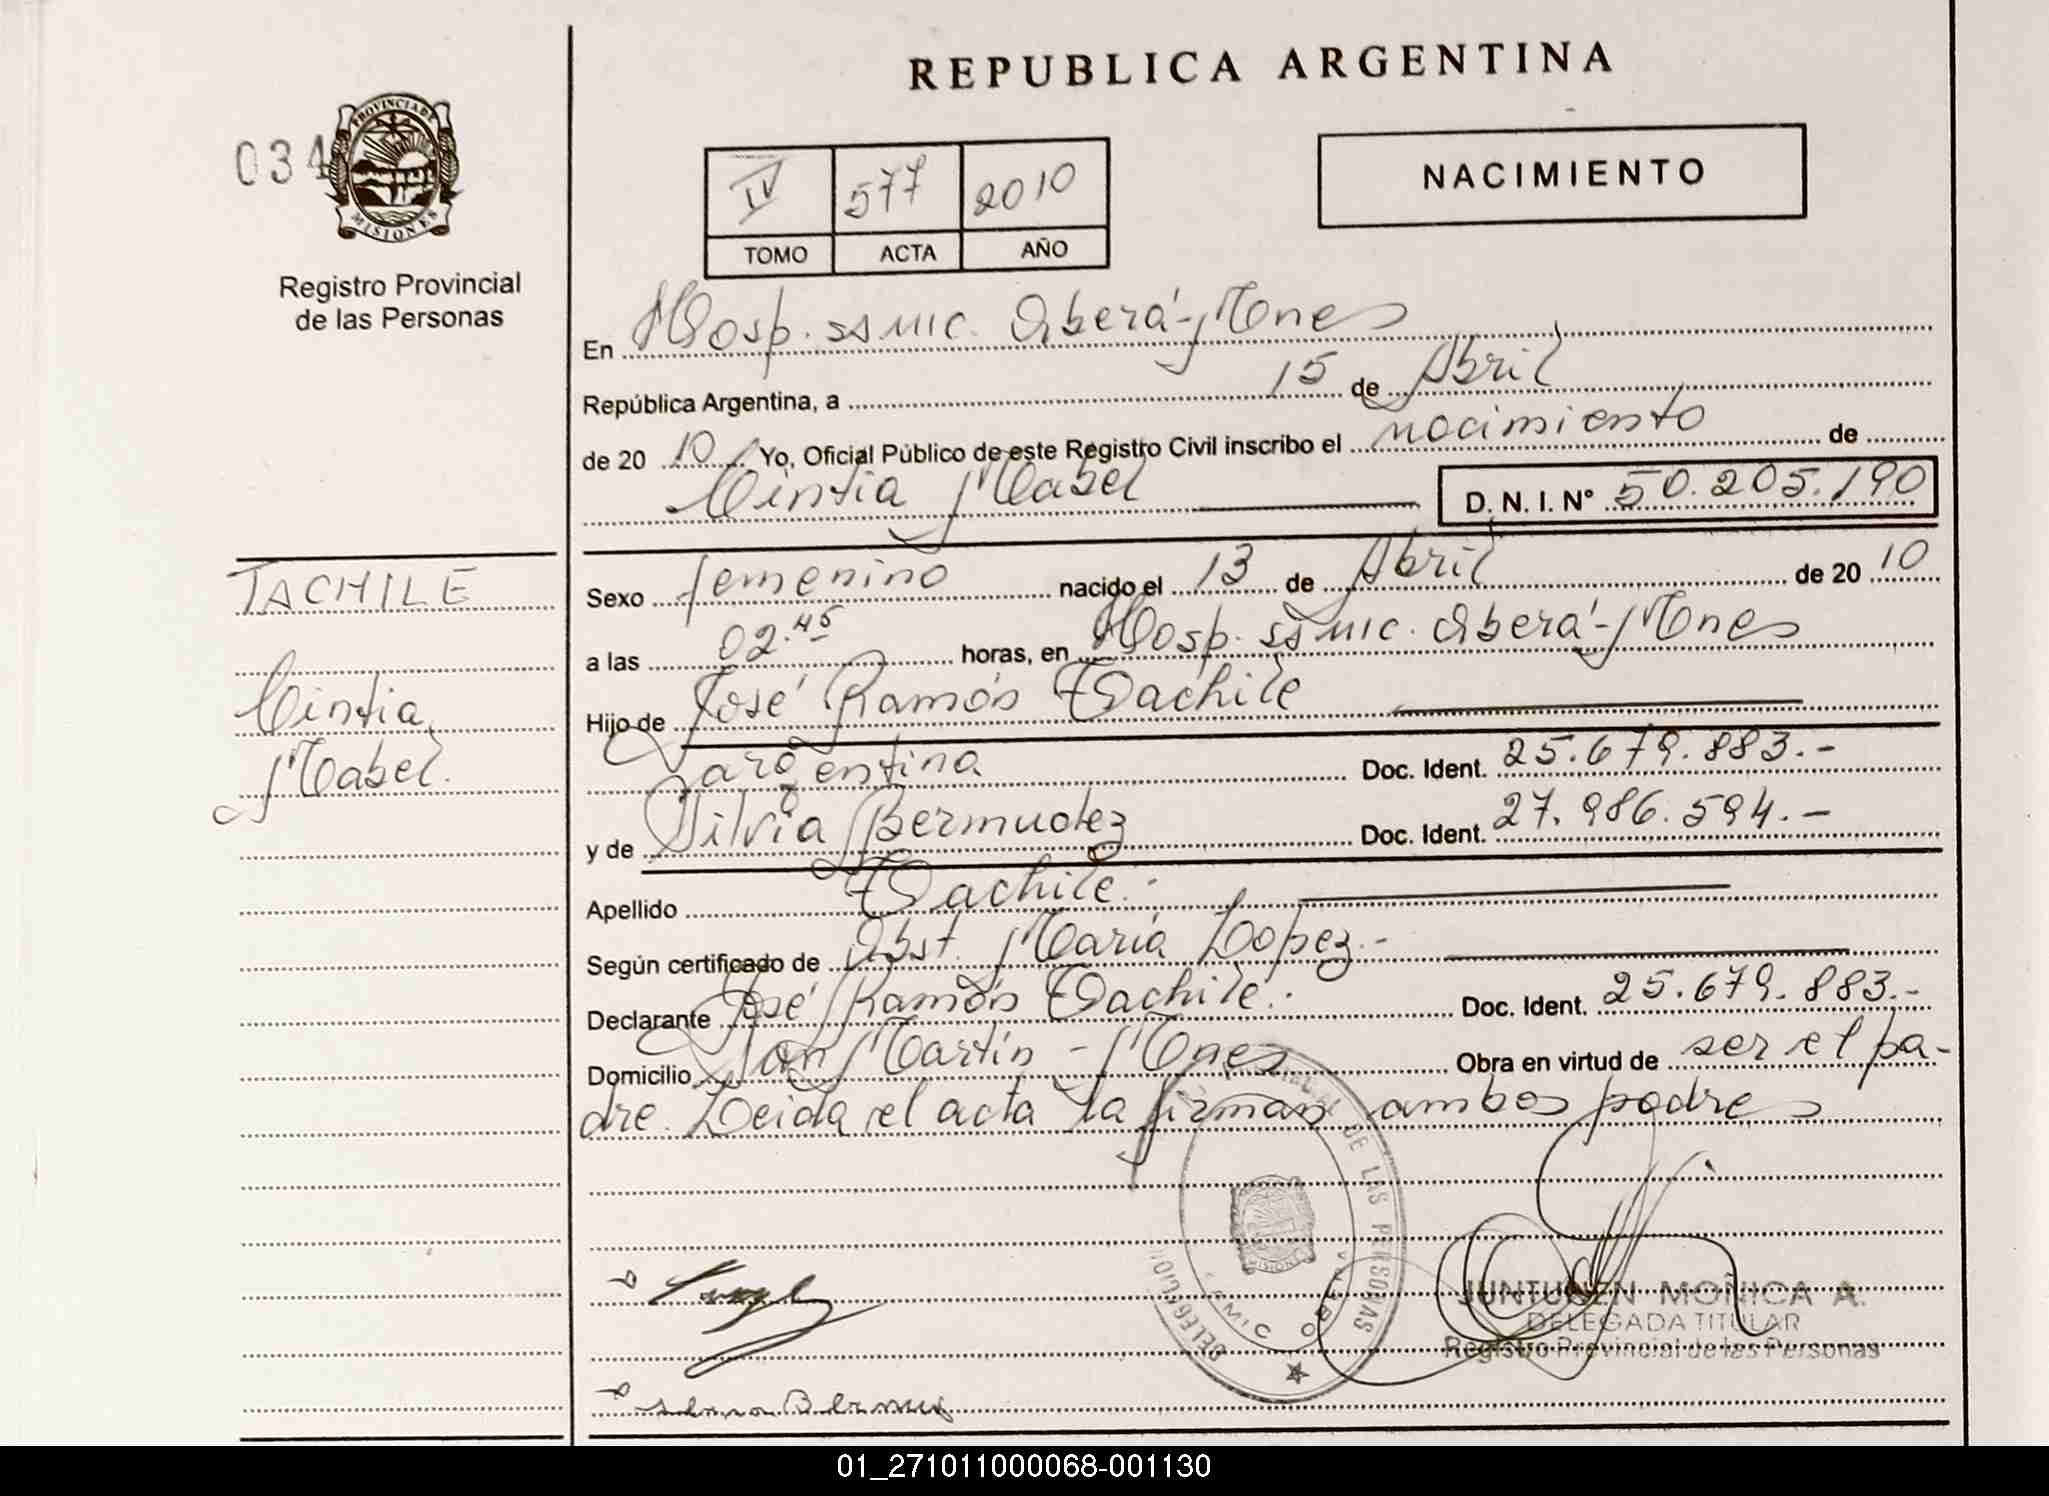 REPUBLICA ARGENTINA
034
PROVINCIA DE
MISIONES
Registro Provincial
de las Personas
IV 577 2010
TOMO ACTA AÑO
NACIMIENTO
En Hosp. SSMIC. Oberá-Mnes
República Argentina, a 15 de Abril
de 20 10 Yo, Oficial Público de este Registro Civil inscribo el nacimiento de
Cintia Mabel D. N. I. N° 50.205.190
TACHILE
Cintia
Mabel.
Sexo femenino nacido el 13 de Abril de 20 10
a las 02.45 horas, en Hosp. SSMIC. Oberá-Mnes
Hijo de José Ramón Tachile
argentina Doc. Ident. 25.679.883.-
y de Silvia Bermudez Doc. Ident. 27.986.594.-
Apellido Tachile.-
Según certificado de Obst. María Lopez.-
Declarante José Ramón Tachile.- Doc. Ident. 25.679.883.-
Domicilio San Martín - Mnes Obra en virtud de ser el pa-
dre. Leida el acta la firman ambos padres
DE LAS PERSONAS
DELEGACION
MISIONES
JUNTUNEN MONICA A.
DELEGADA TITULAR
Registro Provincial de las Personas
01_271011000068-001130